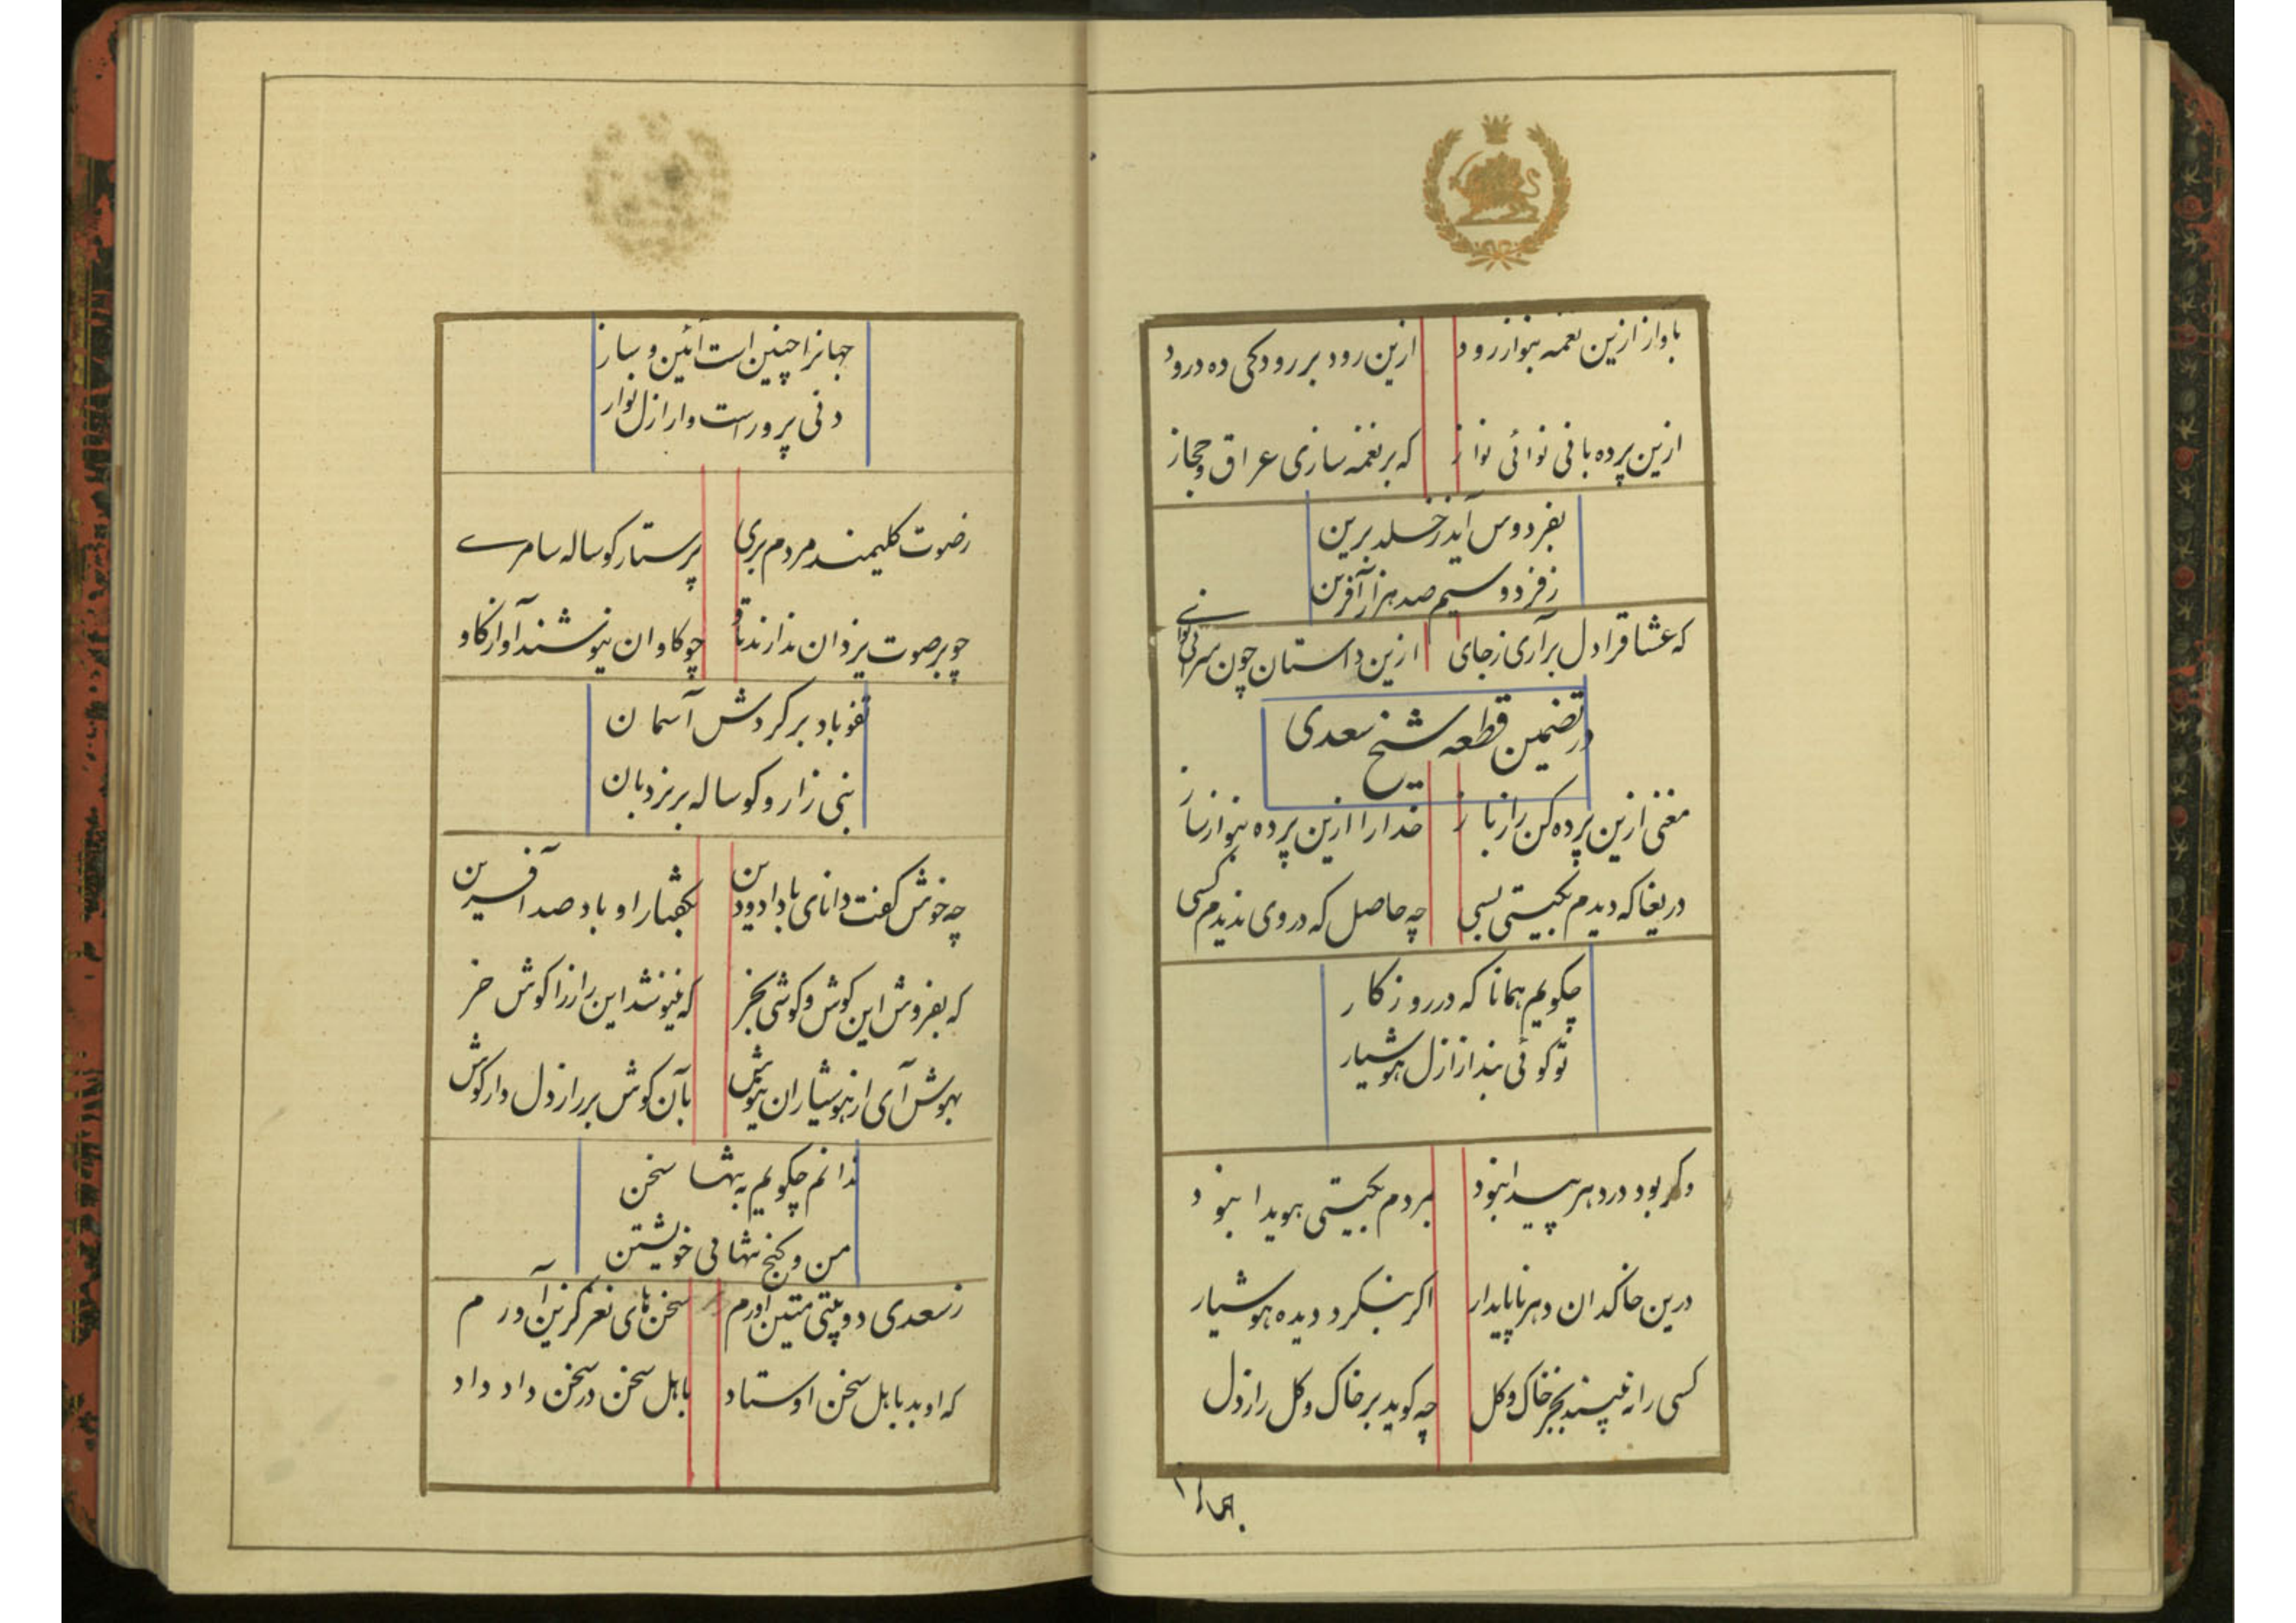 بآواز ازین نغمه بنواز رود ازین رود بر رودکی ده درود
ازین پرده بانی نوائی نواز که بر نغمه سازی عراق و حجاز
بفردوس آید ز خلد برین
ز فردوسیم صد هزار آفرین
که عشاقرا دل برآری زجای ازین داستان چون سرائی نوای
در تضمین قطعه شیخ سعدی
مغنی ازین پرده کن راز باز خدا را ازین پرده بنواز ساز
دریغا که دیدم بگیتی بسی چه حاصل که در وی ندیدم کسی
چگویم همانا که در روزگار
تو گوئی نبد از ازل هوشیار
وگر بود در دهر پیدا نبود بمردم بگیتی هویدا نبود
درین خاکدان دهر ناپایدار اگر بنگرد دیده هوشیار
کسی را نه بیند بجز خاک و گل چه گوید بر خاک و گل راز دل
جهانرا
جهانرا چنین است آئین و ساز
دنی پرور است و اراذل نواز
ز صوت کلیمند مردم بری پرستار گوساله سامرے
چو بر صوت یزدان ندارند تاو چو گاوان نیوشند آواز گاو
تفو باد بر گردش آسمان
نبی زار و گوساله بر نردبان
چه خوش گفت دانای با داد و دین بگفتار او باد صد آفرین
که بفروش این گوش و گوشی بخر که نیوشد این راز را گوش خر
بهوش آی از هوشیاران نیوش بآن گوش بر راز دل دار گوش
ندانم چگویم به تنها سخن
من و کنج تنهائی خویشتن
ز سعدی دو بیتی متین آورم سخن های نغز گزین آورم
که او بد باهل سخن اوستاد باهل سخن در سخن داد داد